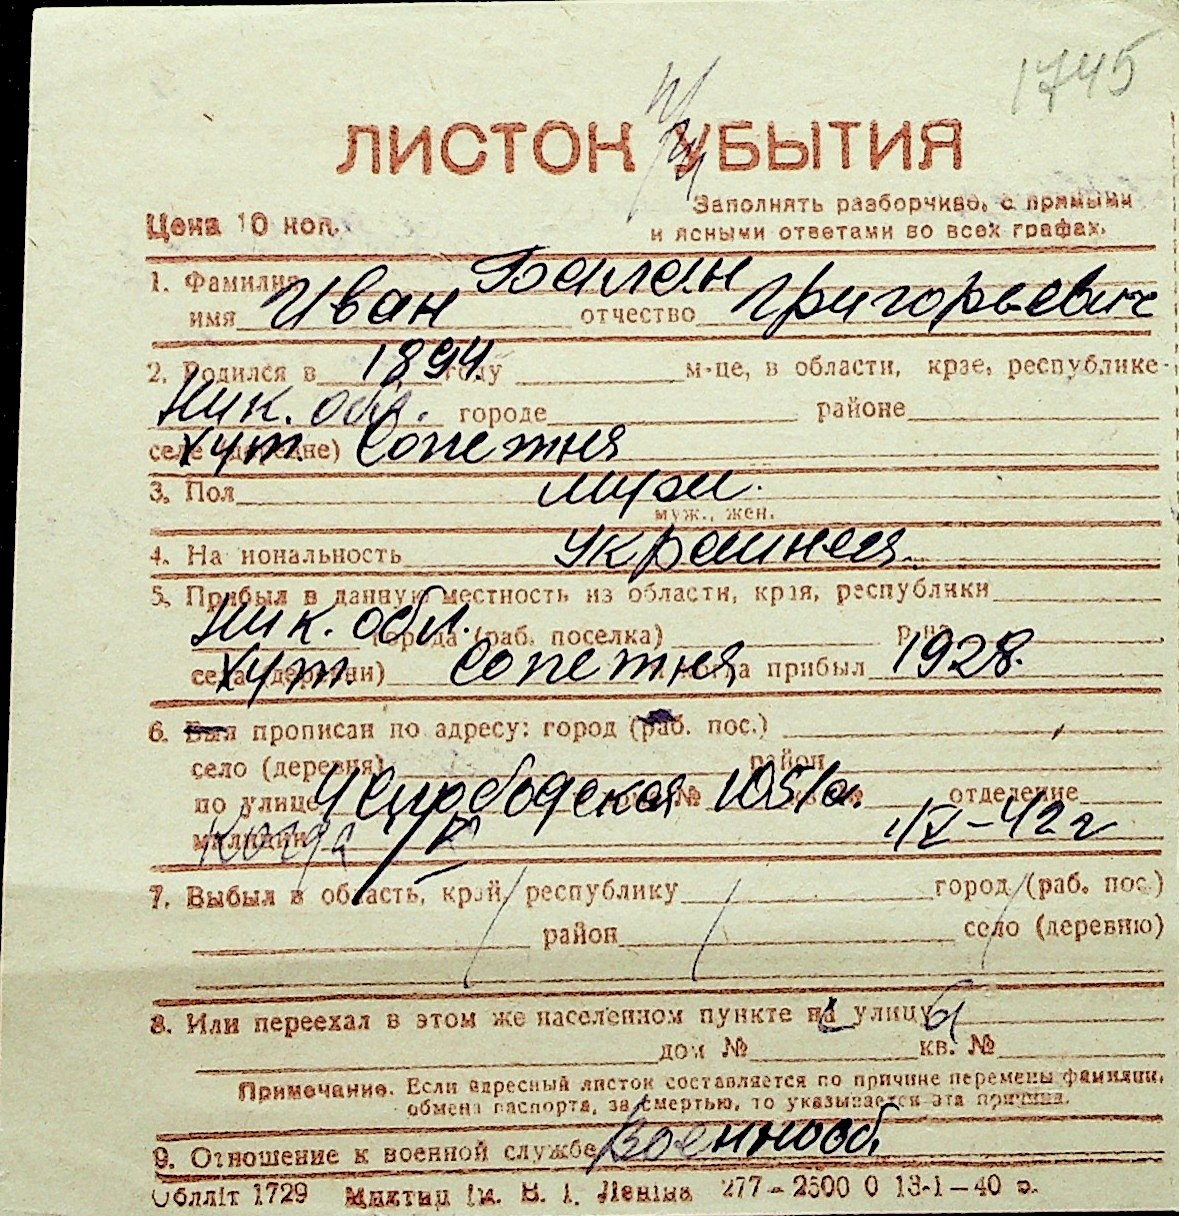 1745
ЛИСТОК УБЫТИЯ
Цена 10 коп.
Заполнять разборчиво, с прямыми
и ясными ответами во всех графах.
1. Фамилия Балан
имя Иван отчество Григорьевич
2. Родился в 1894 году м-це, в области, крае, республике
Ник. обл. городе районе
селе (деревне) хут. Сопетня
3. Пол муж.
муж., жен.
4. Национальность украинец
5. Прибыл в данную местность из области, края, республики
Ник. обл. города (раб. поселка) р-на
села (деревни) Хут. Сопетня и когда прибыл 1928.
6. Был прописан по адресу: город (раб. пос.)
село (деревня) район
по улице № 105/а. отделение
милиции Когда IX-42 г
7. Выбыл в область, край, республику город (раб. пос.)
район село (деревню)
8. Или переехал в этом же населенном пункте на улицу
дом № кв. №
Примечание. Если адресный листок составляется по причине перемены фамилии,
обмена паспорта, за смертью, то указывается эта причина.
9. Отношение к военной службе Военнооб.
Облліт 1729 ім. В. І. Леніна 277-2500 0 13-1-40 р.